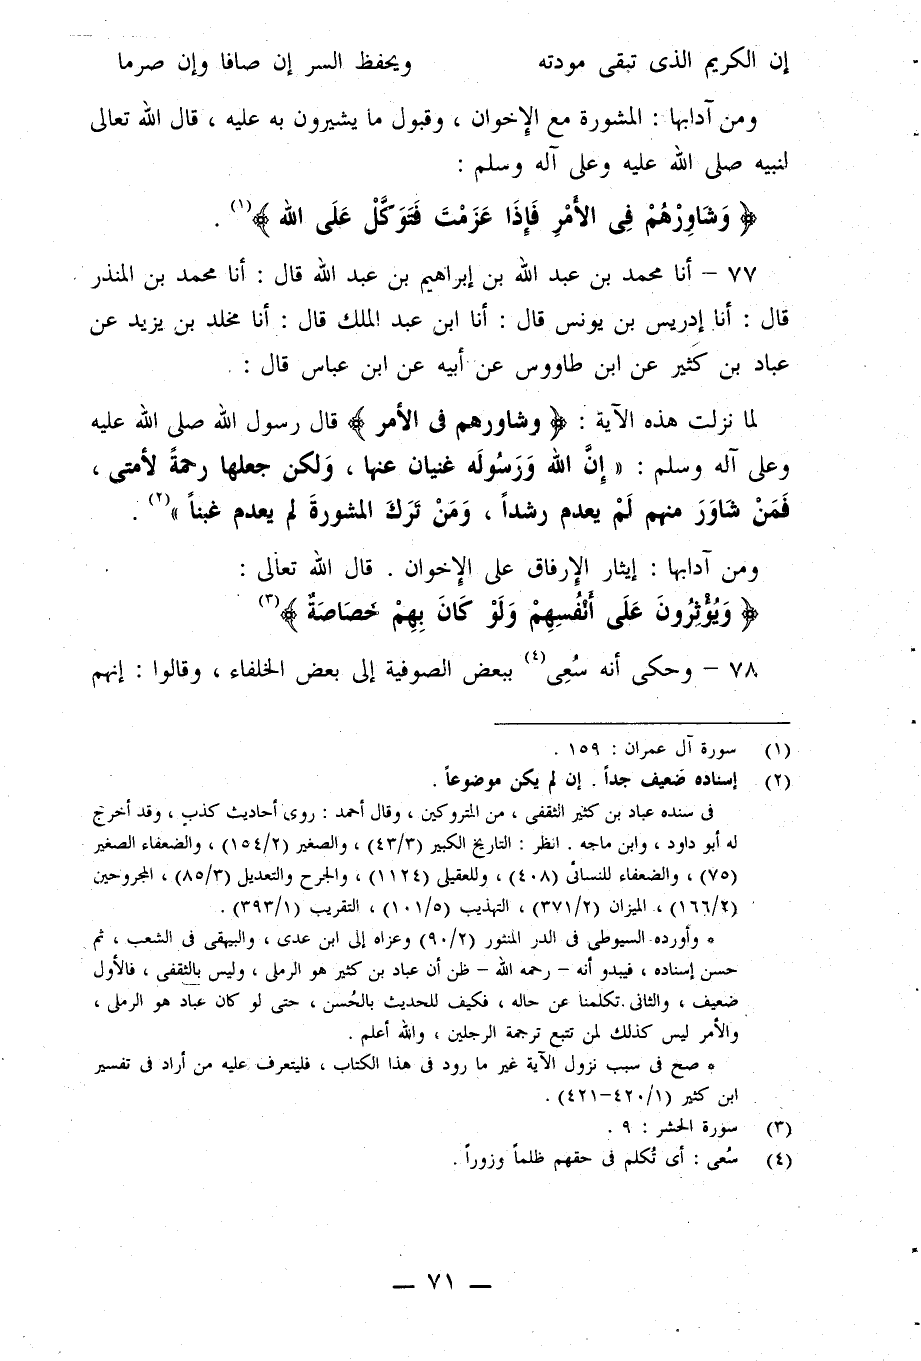 إن الكريم الذى تبقى مودته ويحفظ السر إن صافا وإن صرما
ومن آدابها : المشورة مع الإخوان ، وقبول ما يشيرون به عليه ، قال الله تعالى
لنبيه صلى الله عليه وعلى آله وسلم :
﴿ وَشَاوِرْهُمْ فِى الأَمْرِ فَإِذَا عَزَمْتَ فَتَوَكَّلْ عَلَى الله ﴾(١) .
٧٧ – أنا محمد بن عبد الله بن إبراهيم بن عبد الله قال : أنا محمد بن المنذر
قال : أنا إدريس بن يونس قال : أنا ابن عبد الملك قال : أنا مخلد بن يزيد عن
عباد بن كثير عن ابن طاووس عن أبيه عن ابن عباس قال :
لما نزلت هذه الآية : ﴿ وشاورهم فى الأمر ﴾ قال رسول الله صلى الله عليه
وعلى آله وسلم : « إِنَّ الله وَرَسُولَه غنيان عنها ، وَلكن جعلها رحمةً لأمتى ،
فَمَنْ شَاوَرَ منهم لَمْ يعدم رشداً ، وَمَنْ تَرَكَ المشورةَ لم يعدم غبناً »(٢) .
ومن آدابها : إيثار الإرفاق على الإخوان . قال الله تعالى :
﴿ وَيُؤْثِرُونَ عَلَى أَنْفُسِهِمْ وَلَوْ كَانَ بِهِمْ خَصَاصَةٌ ﴾(٣)
٧٨ – وحكى أنه سُعِى(٤) ببعض الصوفية إلى بعض الخلفاء ، وقالوا : إنهم
(١) سورة آل عمران : ١٥٩ .
(٢) إسناده ضَعيف جداً . إن لم يكن موضوعاً .
فى سنده عباد بن كثير الثقفى ، من المتروكين ، وقال أحمد : روى أحاديث كذب ، وقد أخرج
له أبو داود ، وابن ماجه . انظر : التاريخ الكبير (٤٣/٣) ، والصغير (١٥٤/٢) ، والضعفاء الصغير
(٧٥) ، والضعفاء للنسائى (٤٠٨) ، وللعقيلى (١١٢٤) ، والجرح والتعديل (٨٥/٣) ، المجروحين
(١٦٦/٢) ، الميزان (٣٧١/٢) ، التهذيب (١٠١/٥) ، التقريب (٣٩٣/١) .
* وأورده السيوطى فى الدر المنثور (٩٠/٢) وعزاه إلى ابن عدى ، والبيهقى فى الشعب ، ثم
حسن إسناده ، فيبدو أنه – رحمه الله – ظن أن عباد بن كثير هو الرملى ، وليس بالثقفى ، فالأول
ضعيف ، والثانى تكلمنا عن حاله ، فكيف للحديث بالحُسن ، حتى لو كان عباد هو الرملى ،
والأمر ليس كذلك لمن تتبع ترجمة الرجلين ، والله أعلم .
* صح فى سبب نزول الآية غير ما رود فى هذا الكتاب ، فليتعرف عليه من أراد فى تفسير
ابن كثير (٤٢٠/١–٤٢١) .
(٣) سورة الحشر : ٩ .
(٤) سُعى : أى تُكلم فى حقهم ظلماً وزوراً .
— ٧١ —